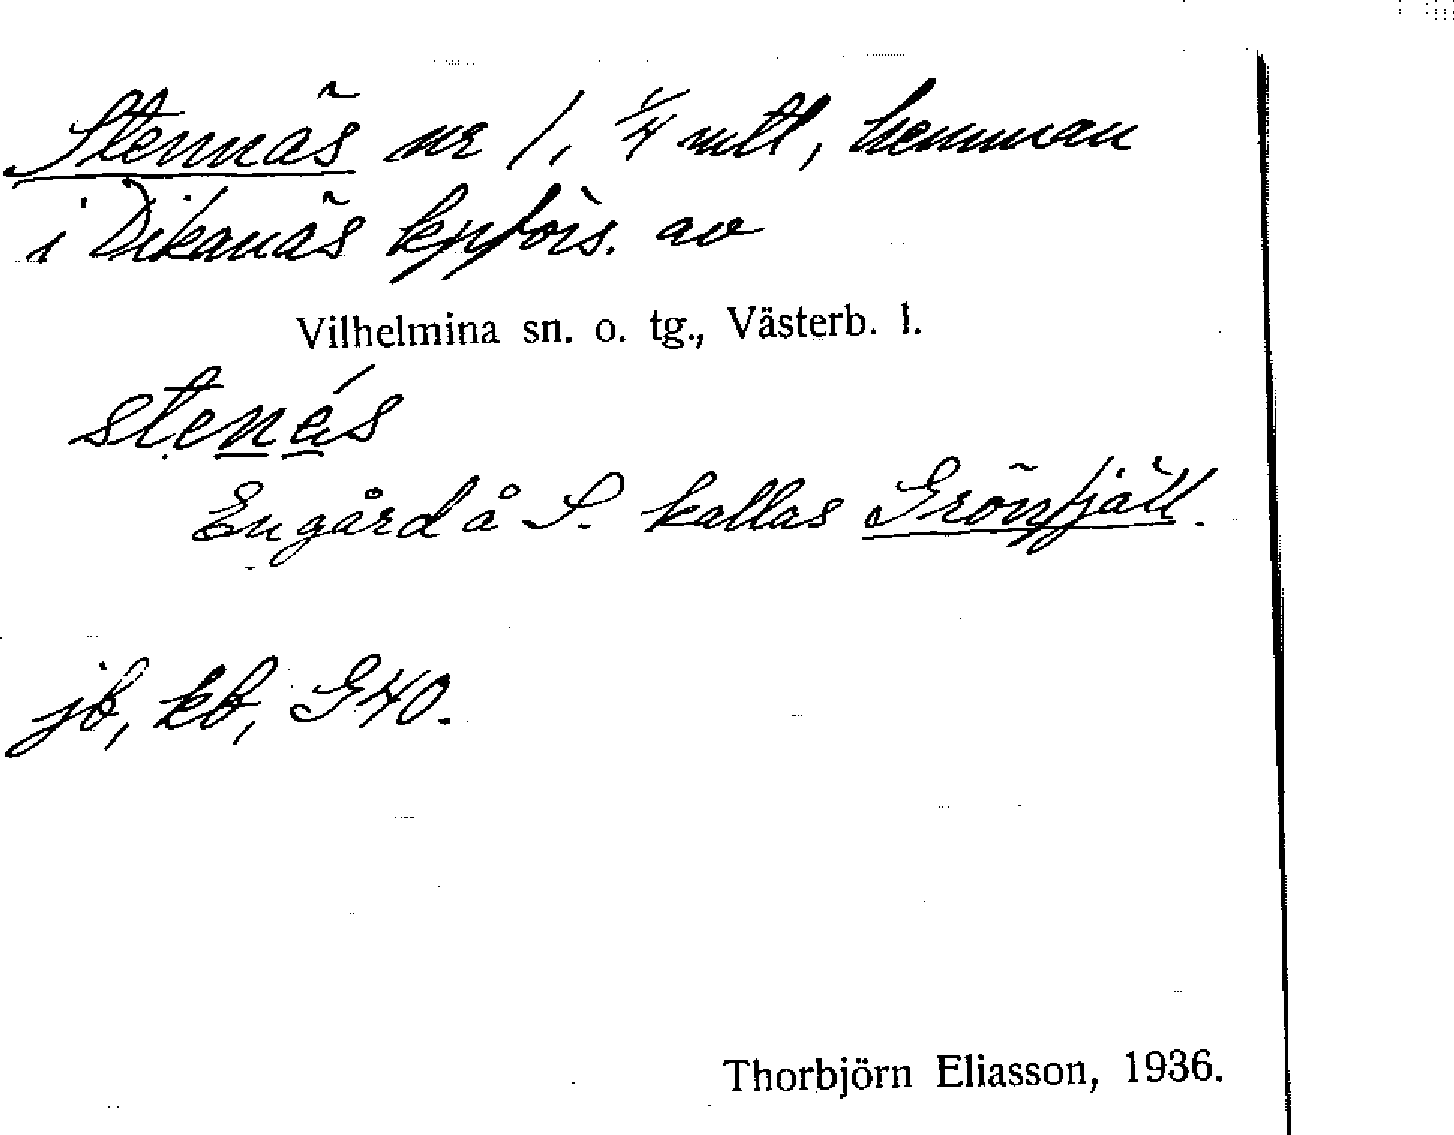 Stennäs nr 1, 1/4 mtl, hemman
i Dikanäs kpförs. av
Vilhelmina sn. o. tg., Västerb. l.
stenés
En gård å S. kallas Grönfjäll.
jb, kb, G40.
Thorbjörn Eliasson, 1936.